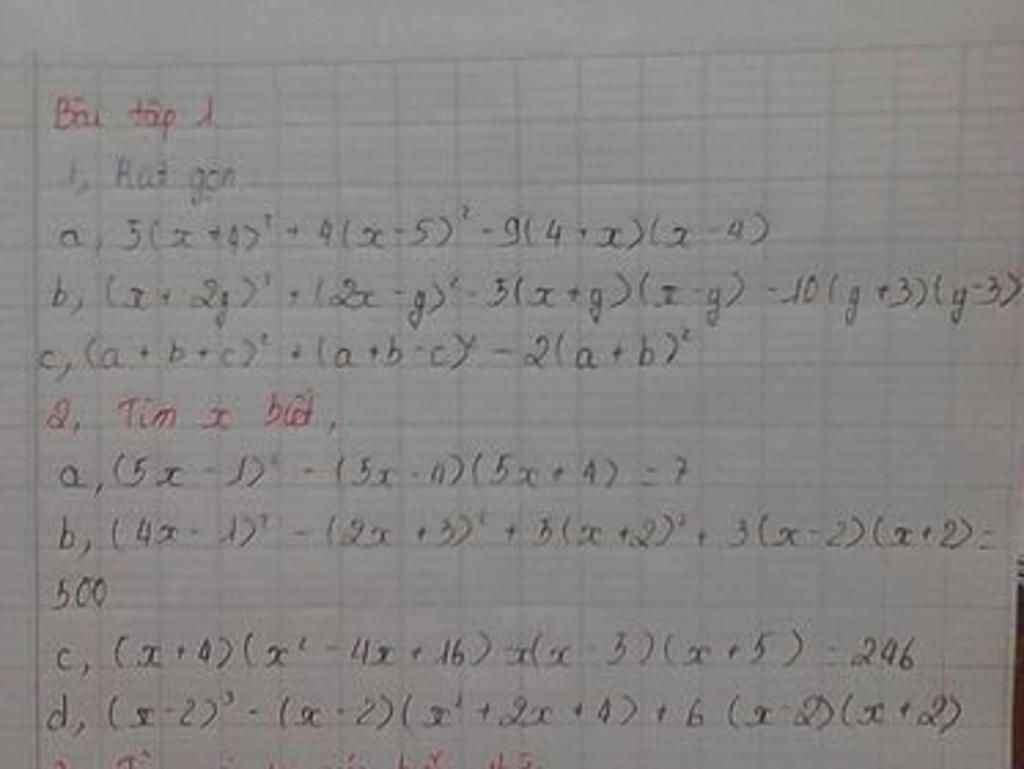 Bài tập 1
1, Rút gọn
a, 5(x+4)² + 4(x-5)² - 9(4+x)(x-4)
b, (x+2y)² + (2x-y)² - 5(x+y)(x-y) - 10(y+3)(y-3)
c, (a+b+c)² + (a+b-c)² - 2(a+b)²
2, Tìm x biết,
a, (5x-1)² - (5x-4)(5x+4) = 7
b, (4x-1)² - (2x+3)² + 3(x+2)² + 3(x-2)(x+2) =
500
c, (x+4)(x² - 4x + 16) - x(x-5)(x+5) = 246
d, (x-2)³ - (x-2)(x² + 2x + 4) + 6(x-2)(x+2)